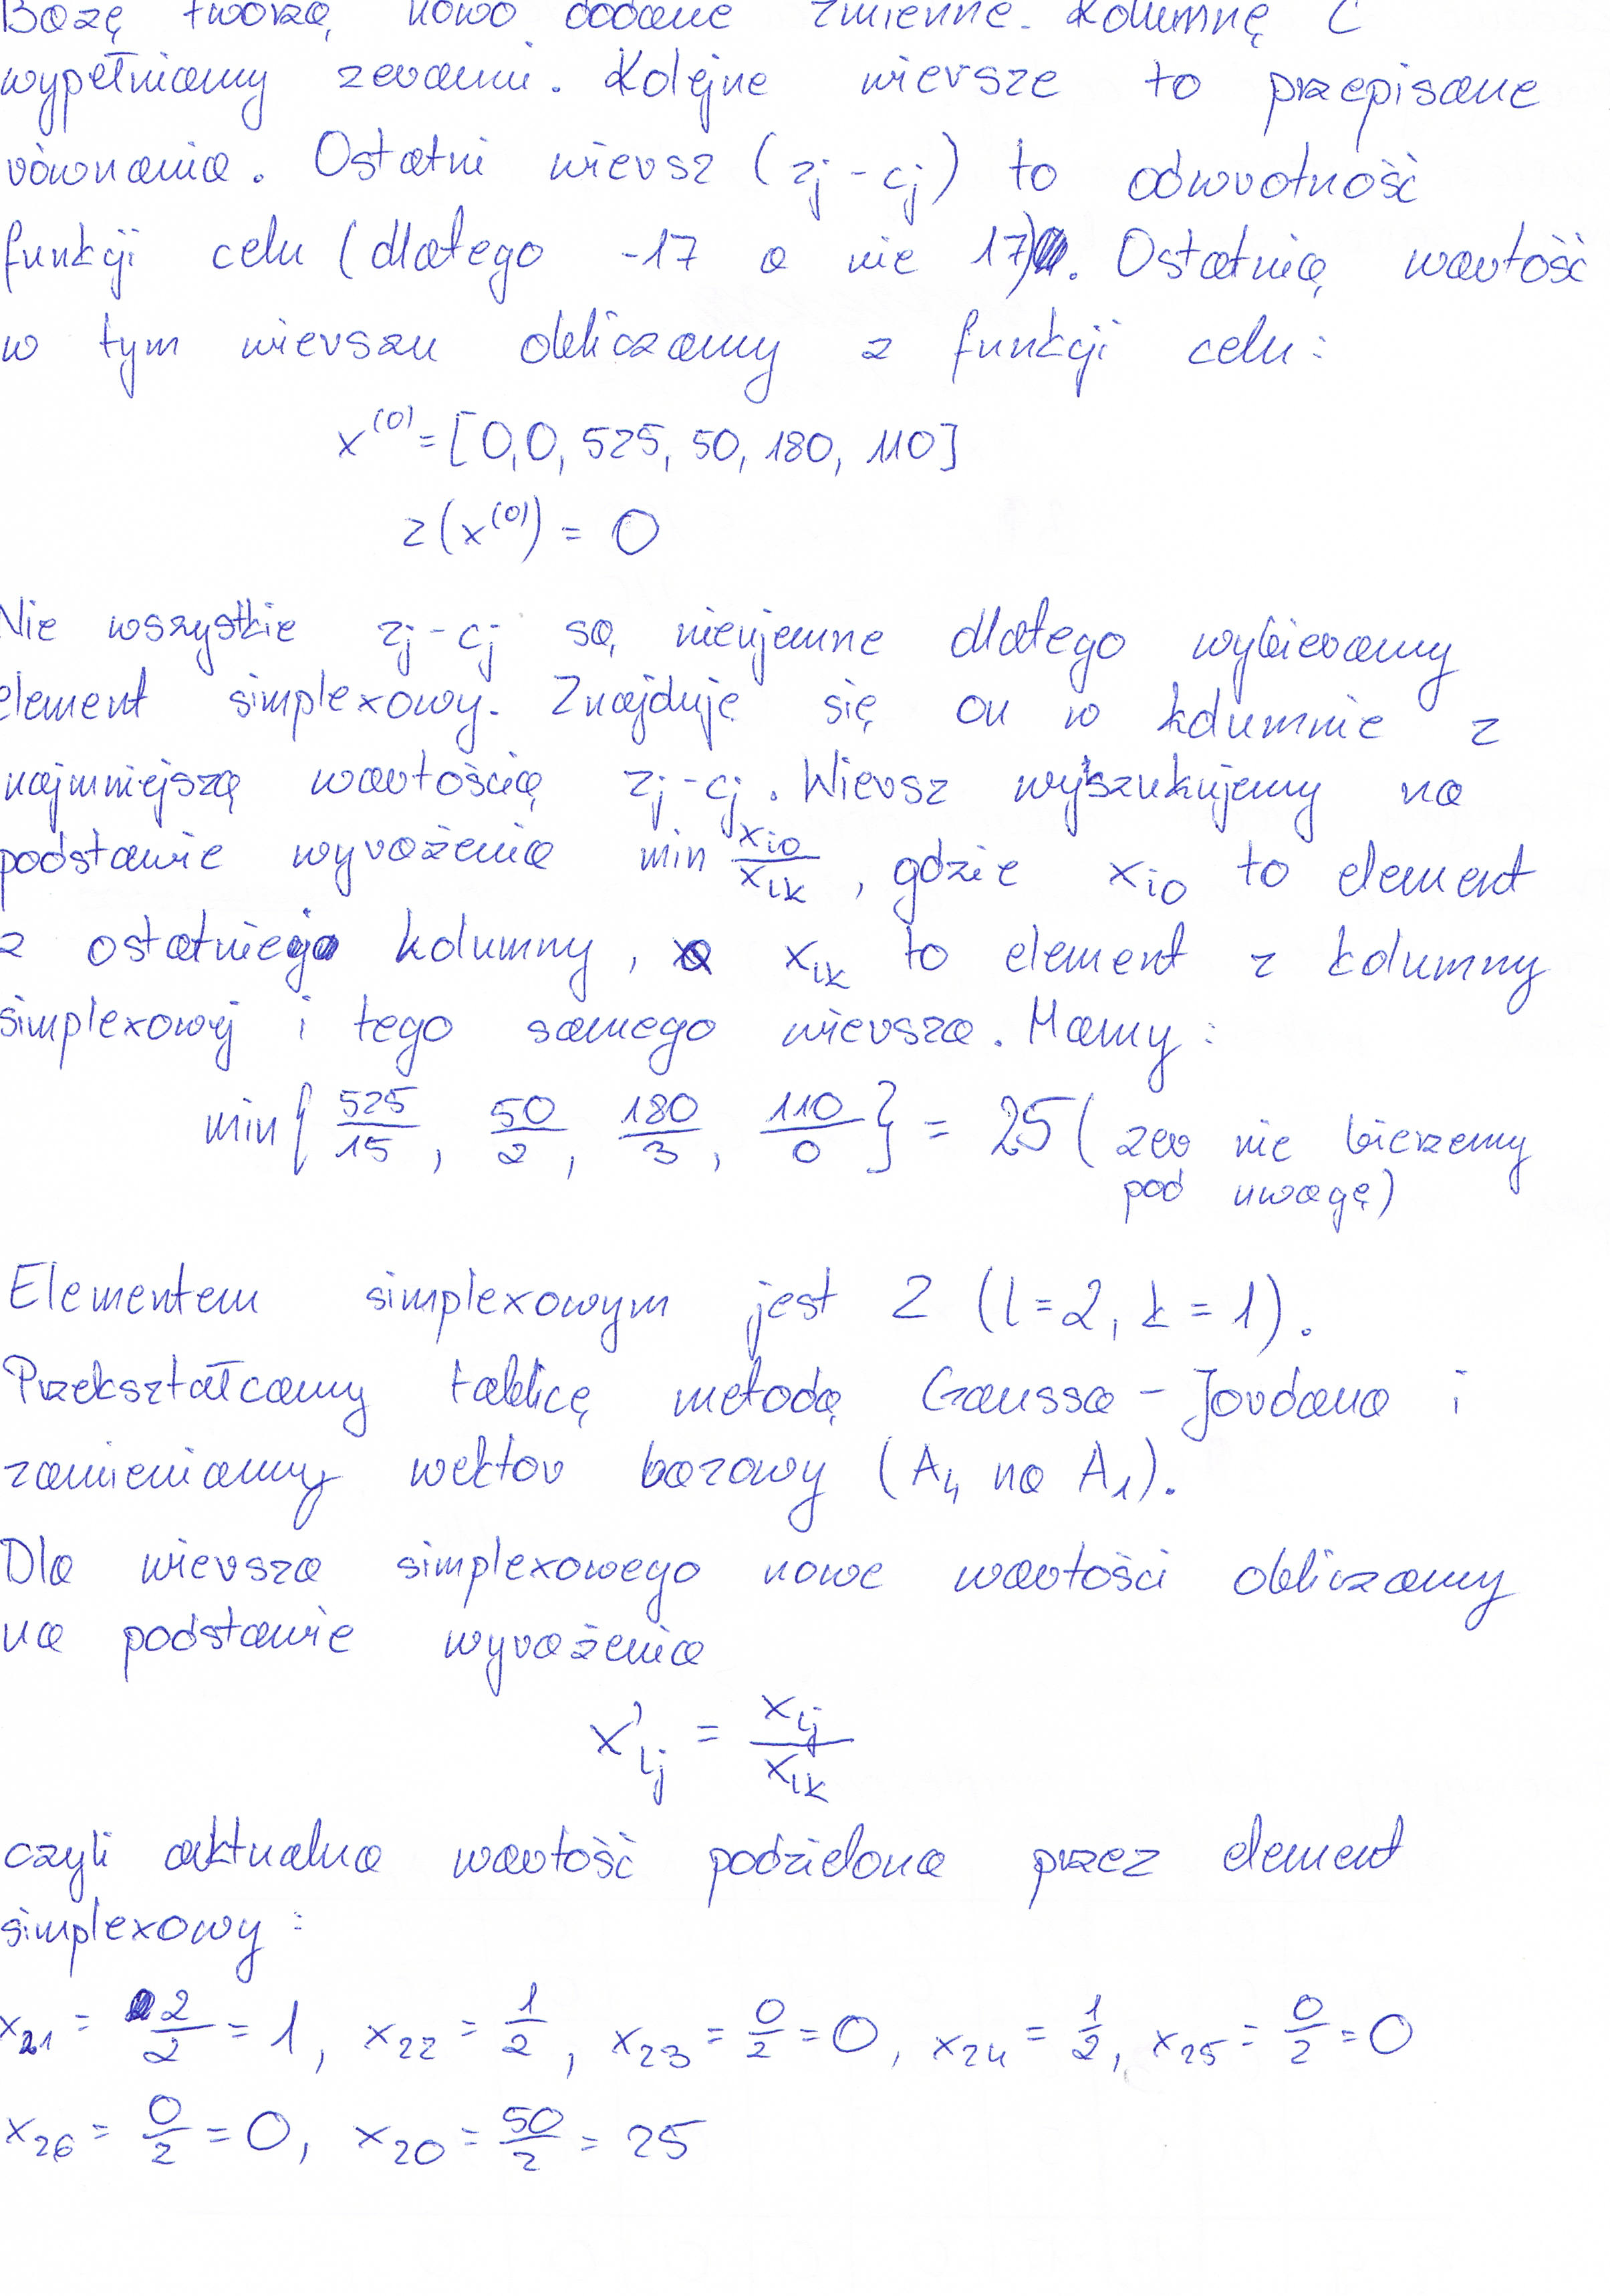 Bazę tworzą nowo dodane zmienne. Kolumnę C
wypełniamy zerami. Kolejne wiersze to przepisane
równania. Ostatni wiersz (zj - cj) to odwrotność
funkcji celu (dlatego -17 a nie 17). Ostatnią wartość
w tym wierszu obliczamy z funkcji celu:
x^(0) = [0,0, 525, 50, 180, 110]
z(x^(0)) = 0
Nie wszystkie zj - cj są nieujemne dlatego wybieramy
element simplexowy. Znajduje się on w kolumnie z
najmniejszą wartością zj - cj. Wiersz wyszukujemy na
podstawie wyrażenia min x_i0/x_ik, gdzie x_i0 to element
z ostatniej kolumny, a x_ik to element z kolumny
simplexowej i tego samego wiersza. Mamy:
min{ 525/15, 50/2, 180/3, 110/0 } = 25 ( zer nie bierzemy
pod uwagę)
Elementem simplexowym jest 2 (l=2, k=1).
Przekształcamy tablicę metodą Gaussa - Jordana i
zamieniamy wektor bazowy (A₄ na A₁).
Dla wiersza simplexowego nowe wartości obliczamy
na podstawie wyrażenia
x'_lj = x_lj/x_lk
czyli aktualna wartość podzielona przez element
simplexowy:
x₂₁ = 2/2 = 1, x₂₂ = 1/2, x₂₃ = 0/2 = 0, x₂₄ = 1/2, x₂₅ = 0/2 = 0
x₂₆ = 0/2 = 0, x₂₀ = 50/2 = 25